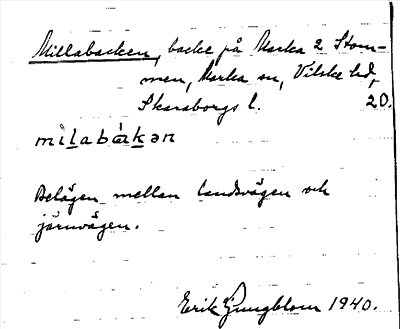 Millabacken, backe på Marka 2 Stom-
men, Marka sn, Vilske hd,
Skaraborgs l. 20.
milabàkən
Belägen mellan landsvägen och
järnvägen.
Erik Ljungblom 1940.